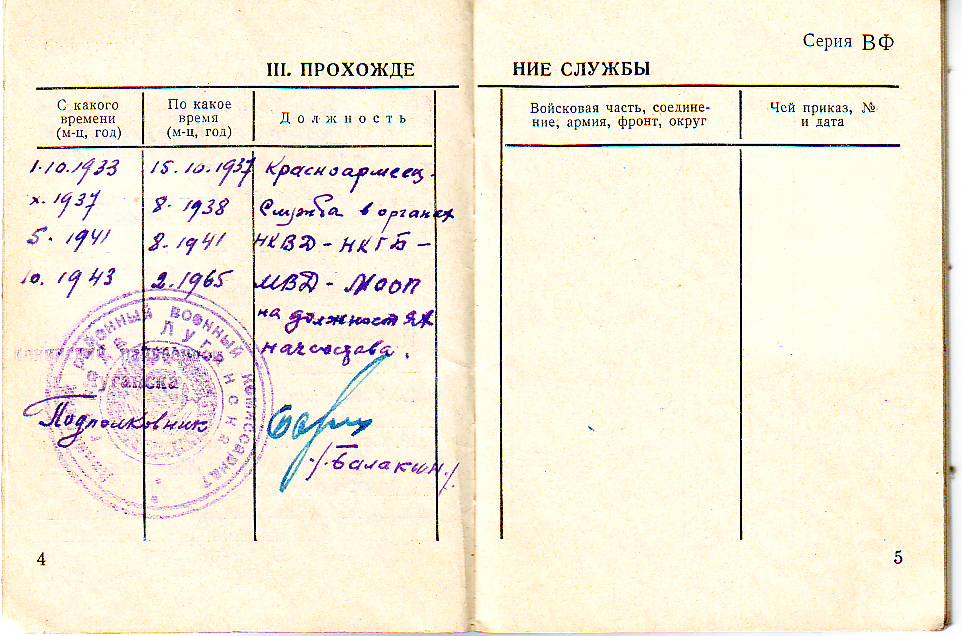 Серия ВФ
III. ПРОХОЖДЕ
НИЕ СЛУЖБЫ
С какого
времени
(м-ц, год)
По какое
время
(м-ц, год)
Должность
Войсковая часть, соедине-
ние, армия, фронт, округ
Чей приказ, №
и дата
1.10.1933 15.10.1937 Красноармеец.
X. 1937 8. 1938 Служба в органах
5. 1941 8. 1941 НКВД - НКГБ -
10. 1943 2. 1965 МВД - МООП
на должностях
начсостава.
РАЙОННЫЙ ВОЕННЫЙ КОМИССАРИАТ
Луганска
Подполковник
/Балакин/
4
5